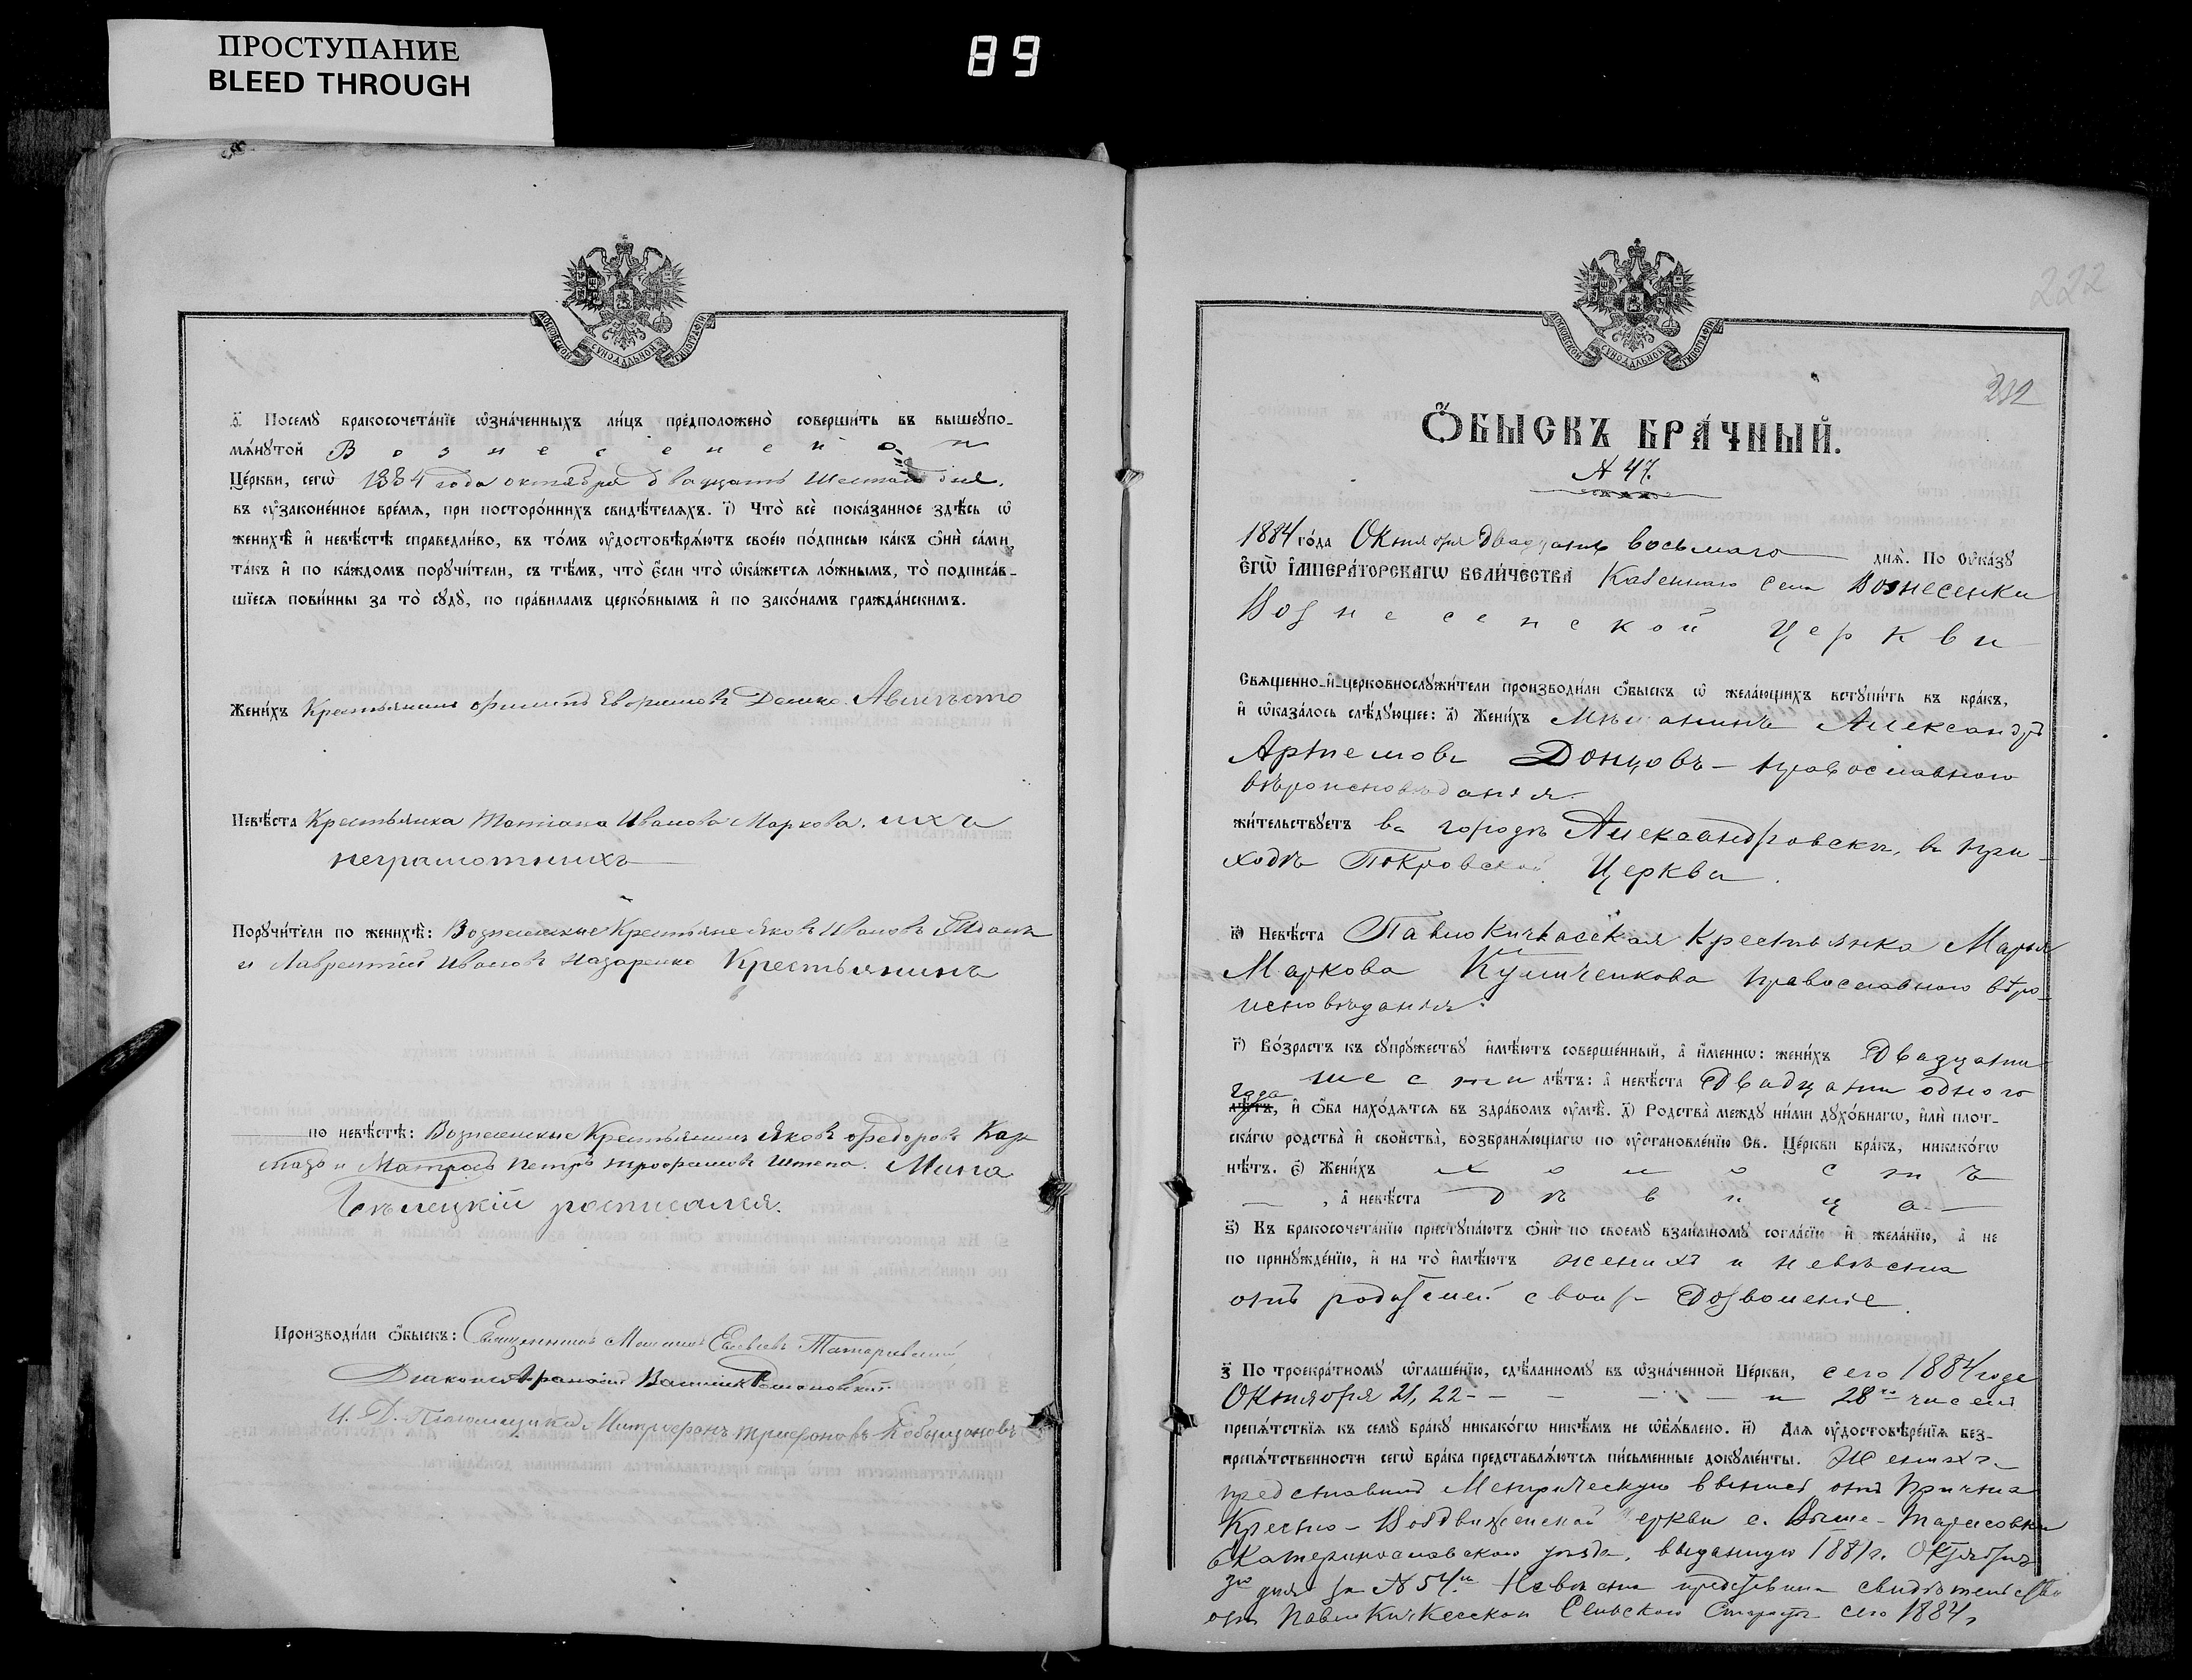 ПРОСТУПАНИЕ
BLEED THROUGH
89
МОСКОВСКОЙ СѴНОДАЛЬНОЙ ТИПОГРАФІИ
Посемꙋ бракосочетанїе ѡзначенныхъ лицъ предположено совершить въ вышеꙋпо-
мянꙋтой Вознесенской
Церкви, сегѡ 1884 года октября двадцать шестаго дня.
въ ᲂузаконенное время, при постороннихъ свидѣтеляхъ. і) Что все показанное здѣсь ѡ
женихѣ и невѣстѣ справедливо, въ томъ ᲂудостовѣряютъ своею подписью какъ ѻни сами,
такъ и по каждомъ порꙋчители, съ тѣмъ, что если что ѡкажется ложнымъ, то подписав-
шїеся повинны за то сꙋдꙋ, по правиламъ церковнымъ и по законамъ гражданскимъ.
Женихъ Крестьянинъ Филипъ Евфимовъ Дашко.
Невѣста Крестьянка Татіана Иванова Маркова. ихъ
неграмотныхъ
Порꙋчители по женихѣ: Вознесенские Крестьяне Яковъ Ивановъ
и Лаврентій Ивановъ Назаренко Крестьянинъ
по невѣстѣ: Вознесенские Крестьянинъ Яковъ Федоровъ Кар-
и Матросъ Петръ Трофимовъ Штепа. Мина
Бѣлецкій росписался.
Производили ѻбыскъ: Священникъ
Діаконъ Афанасій Романовскій
И. Д. Псаломщика Митрофанъ Трифоновъ
222
МОСКОВСКОЙ СѴНОДАЛЬНОЙ ТИПОГРАФІИ
232
ѺБЫСКЪ БРАЧНЫЙ.
№ 47.
1884 года Октября двадцать восьмаго днѧ. По ᲂуказꙋ
ЕГѠ ІМПЕРАТОРСКАГѠ ВЕЛИЧЕСТВА Казеннаго села Вознесенки
Вознесенской Церкви
Священно-и-церковнослꙋжители производили ѻбыскъ ѡ желающихъ встꙋпить въ бракъ,
и ѡказалось слѣдꙋющее: а) Женихъ Мѣщанинъ Александръ
Артемовъ Донцовъ - православнаго
вѣроисповѣданія.
жительствꙋетъ въ городѣ Александровскѣ, въ при-
ходѣ Покровской Церкви.
в) Невѣста Павлокичкасская Крестьянка Марья
Маркова Кушченкова православнаго вѣро-
исповѣданія.
г) Возрастъ къ сꙋпрꙋжествꙋ имѣютъ совершенный, а именнѡ: женихъ Двадцати
шести лѣтъ: а невѣста Двадцати одного
года
лѣтъ, и ѻба находятся въ здравомъ ᲂумѣ. д) Родства междꙋ ними дꙋховнагѡ, или плот-
скагѡ родства и свойства, возбраняющагѡ по ᲂустановленїю Св. Церкви бракъ, никакогѡ
нѣтъ. є) Женихъ холостъ
, а невѣста дѣвица
ѕ) Къ бракосочетанїю пристꙋпаютъ ѻни по своемꙋ взаимномꙋ согласїю и желанїю, а не
по принꙋжденїю, и на то имѣютъ женихъ и невѣста
отъ родителей своихъ Дозволеніе.
з) По троекратномꙋ ѡглашенїю, сдѣланномꙋ въ ѡзначенной Церкви, сего 1884 года
Октября 21, 22 - - - - - и 28го числа
препятствїя къ семꙋ бракꙋ никакогѡ никѣмъ не ѡбъявлено. и) Для ᲂудостовѣренїя без-
препятственности сегѡ брака представляются письменные докꙋменты. Женихъ
представилъ Метрическую выпись отъ Причта
Кресто-Воздвиженской Церкви с. Выше-Тарасовки
Екатеринославскаго уѣзда, выданную 1881 г. Октября
дня за № 54. Невѣста представила свидѣтельство
отъ Павлокичкасскаго Сельскаго Старосты сего 1884 г.